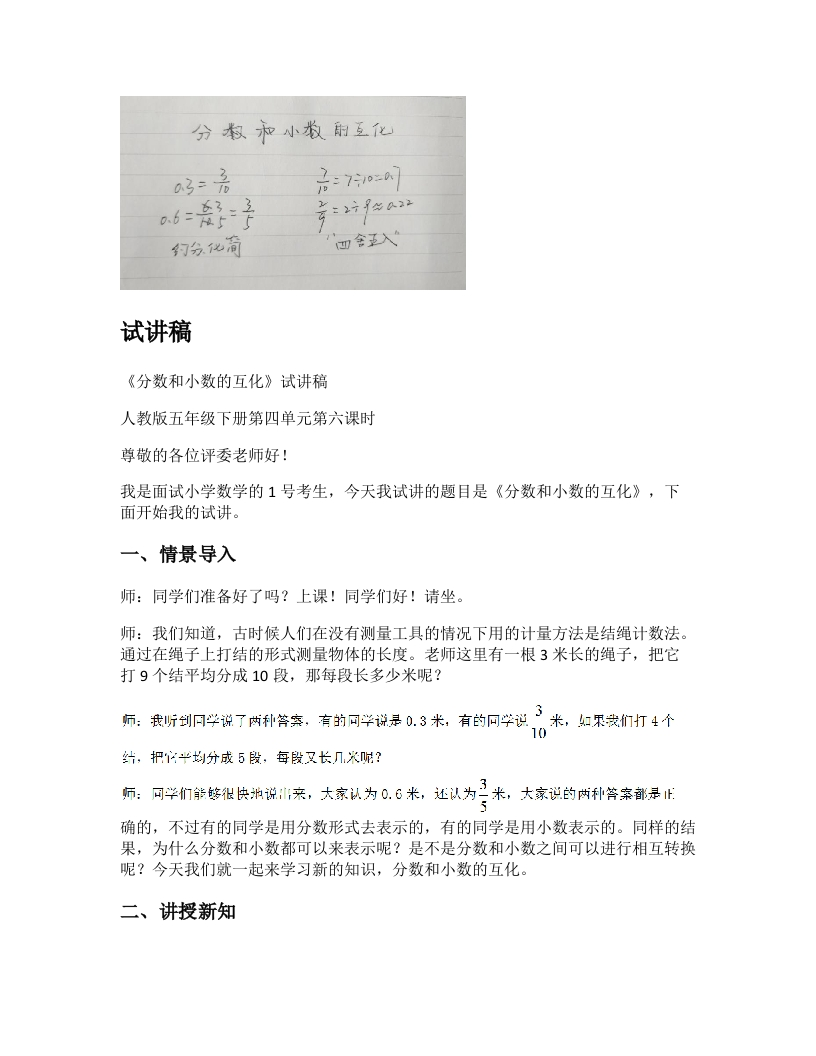 分数和小数的互化
0.3=3/10 7/10=7÷10=0.7
0.6=6 3/10 5=3/5 2/9=2÷9≈0.22
约分化简 "四舍五入"
试讲稿
《分数和小数的互化》试讲稿
人教版五年级下册第四单元第六课时
尊敬的各位评委老师好！
我是面试小学数学的 1 号考生，今天我试讲的题目是《分数和小数的互化》，下
面开始我的试讲。
一、情景导入
师：同学们准备好了吗？上课！同学们好！请坐。
师：我们知道，古时候人们在没有测量工具的情况下用的计量方法是结绳计数法。
通过在绳子上打结的形式测量物体的长度。老师这里有一根 3 米长的绳子，把它
打 9 个结平均分成 10 段，那每段长多少米呢？
师：我听到同学说了两种答案，有的同学说是 0.3 米，有的同学说 3/10 米，如果我们打 4 个
结，把它平均分成 5 段，每段又长几米呢？
师：同学们能够很快地说出来，大家认为 0.6 米，还认为 3/5 米，大家说的两种答案都是正
确的，不过有的同学是用分数形式去表示的，有的同学是用小数表示的。同样的结
果，为什么分数和小数都可以来表示呢？是不是分数和小数之间可以进行相互转换
呢？今天我们就一起来学习新的知识，分数和小数的互化。
二、讲授新知